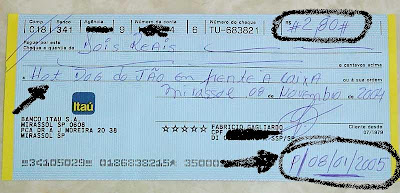 Comp Banco Agência Número da conta Número do cheque R$
018 341 9 4 6 TU-683821 #2,80#
Pague por este
Cheque a quantia de Dois Reais
e centavos acima
Hot Dog do JÃO em frente a CAIXA ou à sua ordem
Mirassol 08 de Novembro de 2004
Itaú
BANCO ITAU S/A
MIRASSOL SP 0608
PCA DR A J MOREIRA 20 38
MIRASSOL SP
☆☆☆☆☆ FABRICIO PAGLIARDO
CPF
DI SSP/SP
Cliente desde
07/1979
P/08/01/2005